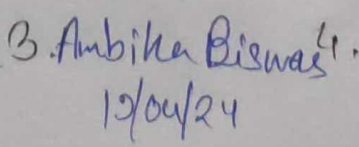 3. Ambika Biswas 4.
19/04/24